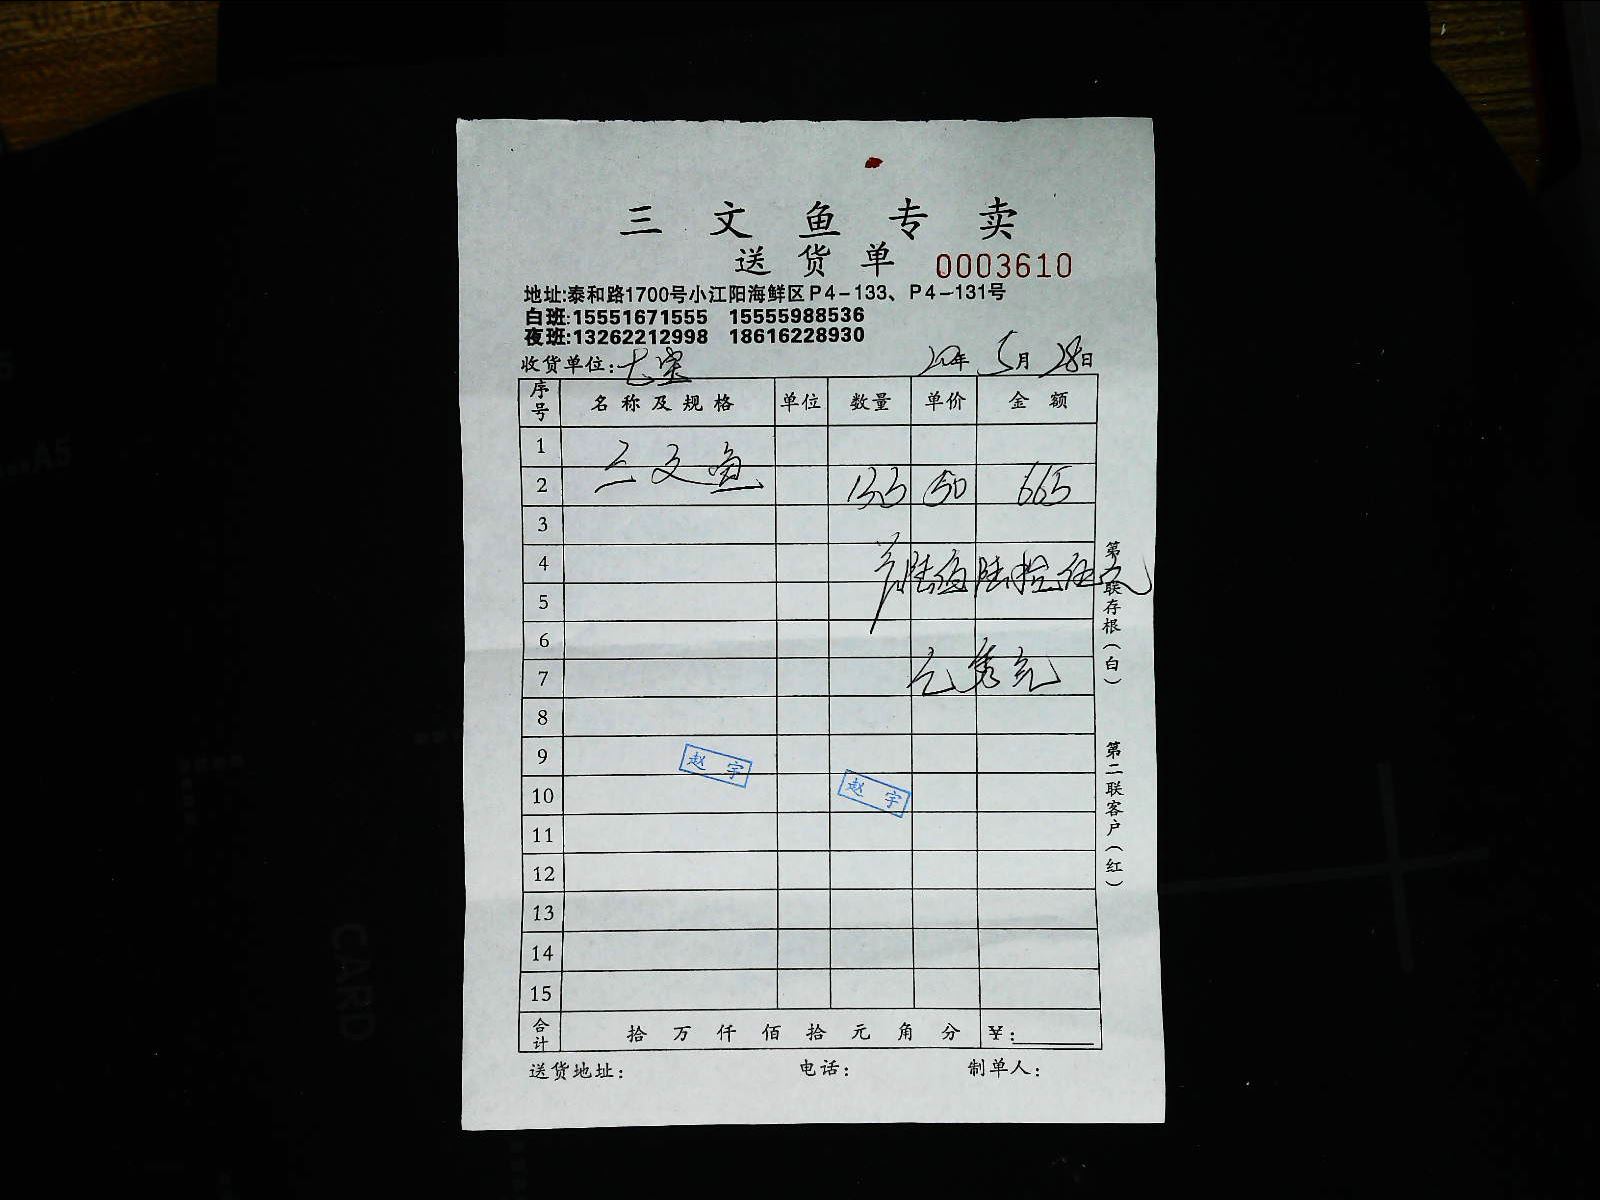 三文鱼专卖
送货单 0003610
地址:泰和路1700号小江阳海鲜区P4-133、P4-131号
白班:15551671555 15555988536
夜班:13262212998 18616228930
收货单位: 年 5月 28日
序号 名称及规格 单位 数量 单价 金额
1 三文鱼
2 133 50 665
3
4 陆佰陆拾伍元
5
6
7
8
9 赵宇
10 赵宇
11
12
13
14
15
合计 拾 万 仟 佰 拾 元 角 分 ¥:
送货地址: 电话: 制单人:
第一联存根(白)
第二联客户(红)
A5
CARD